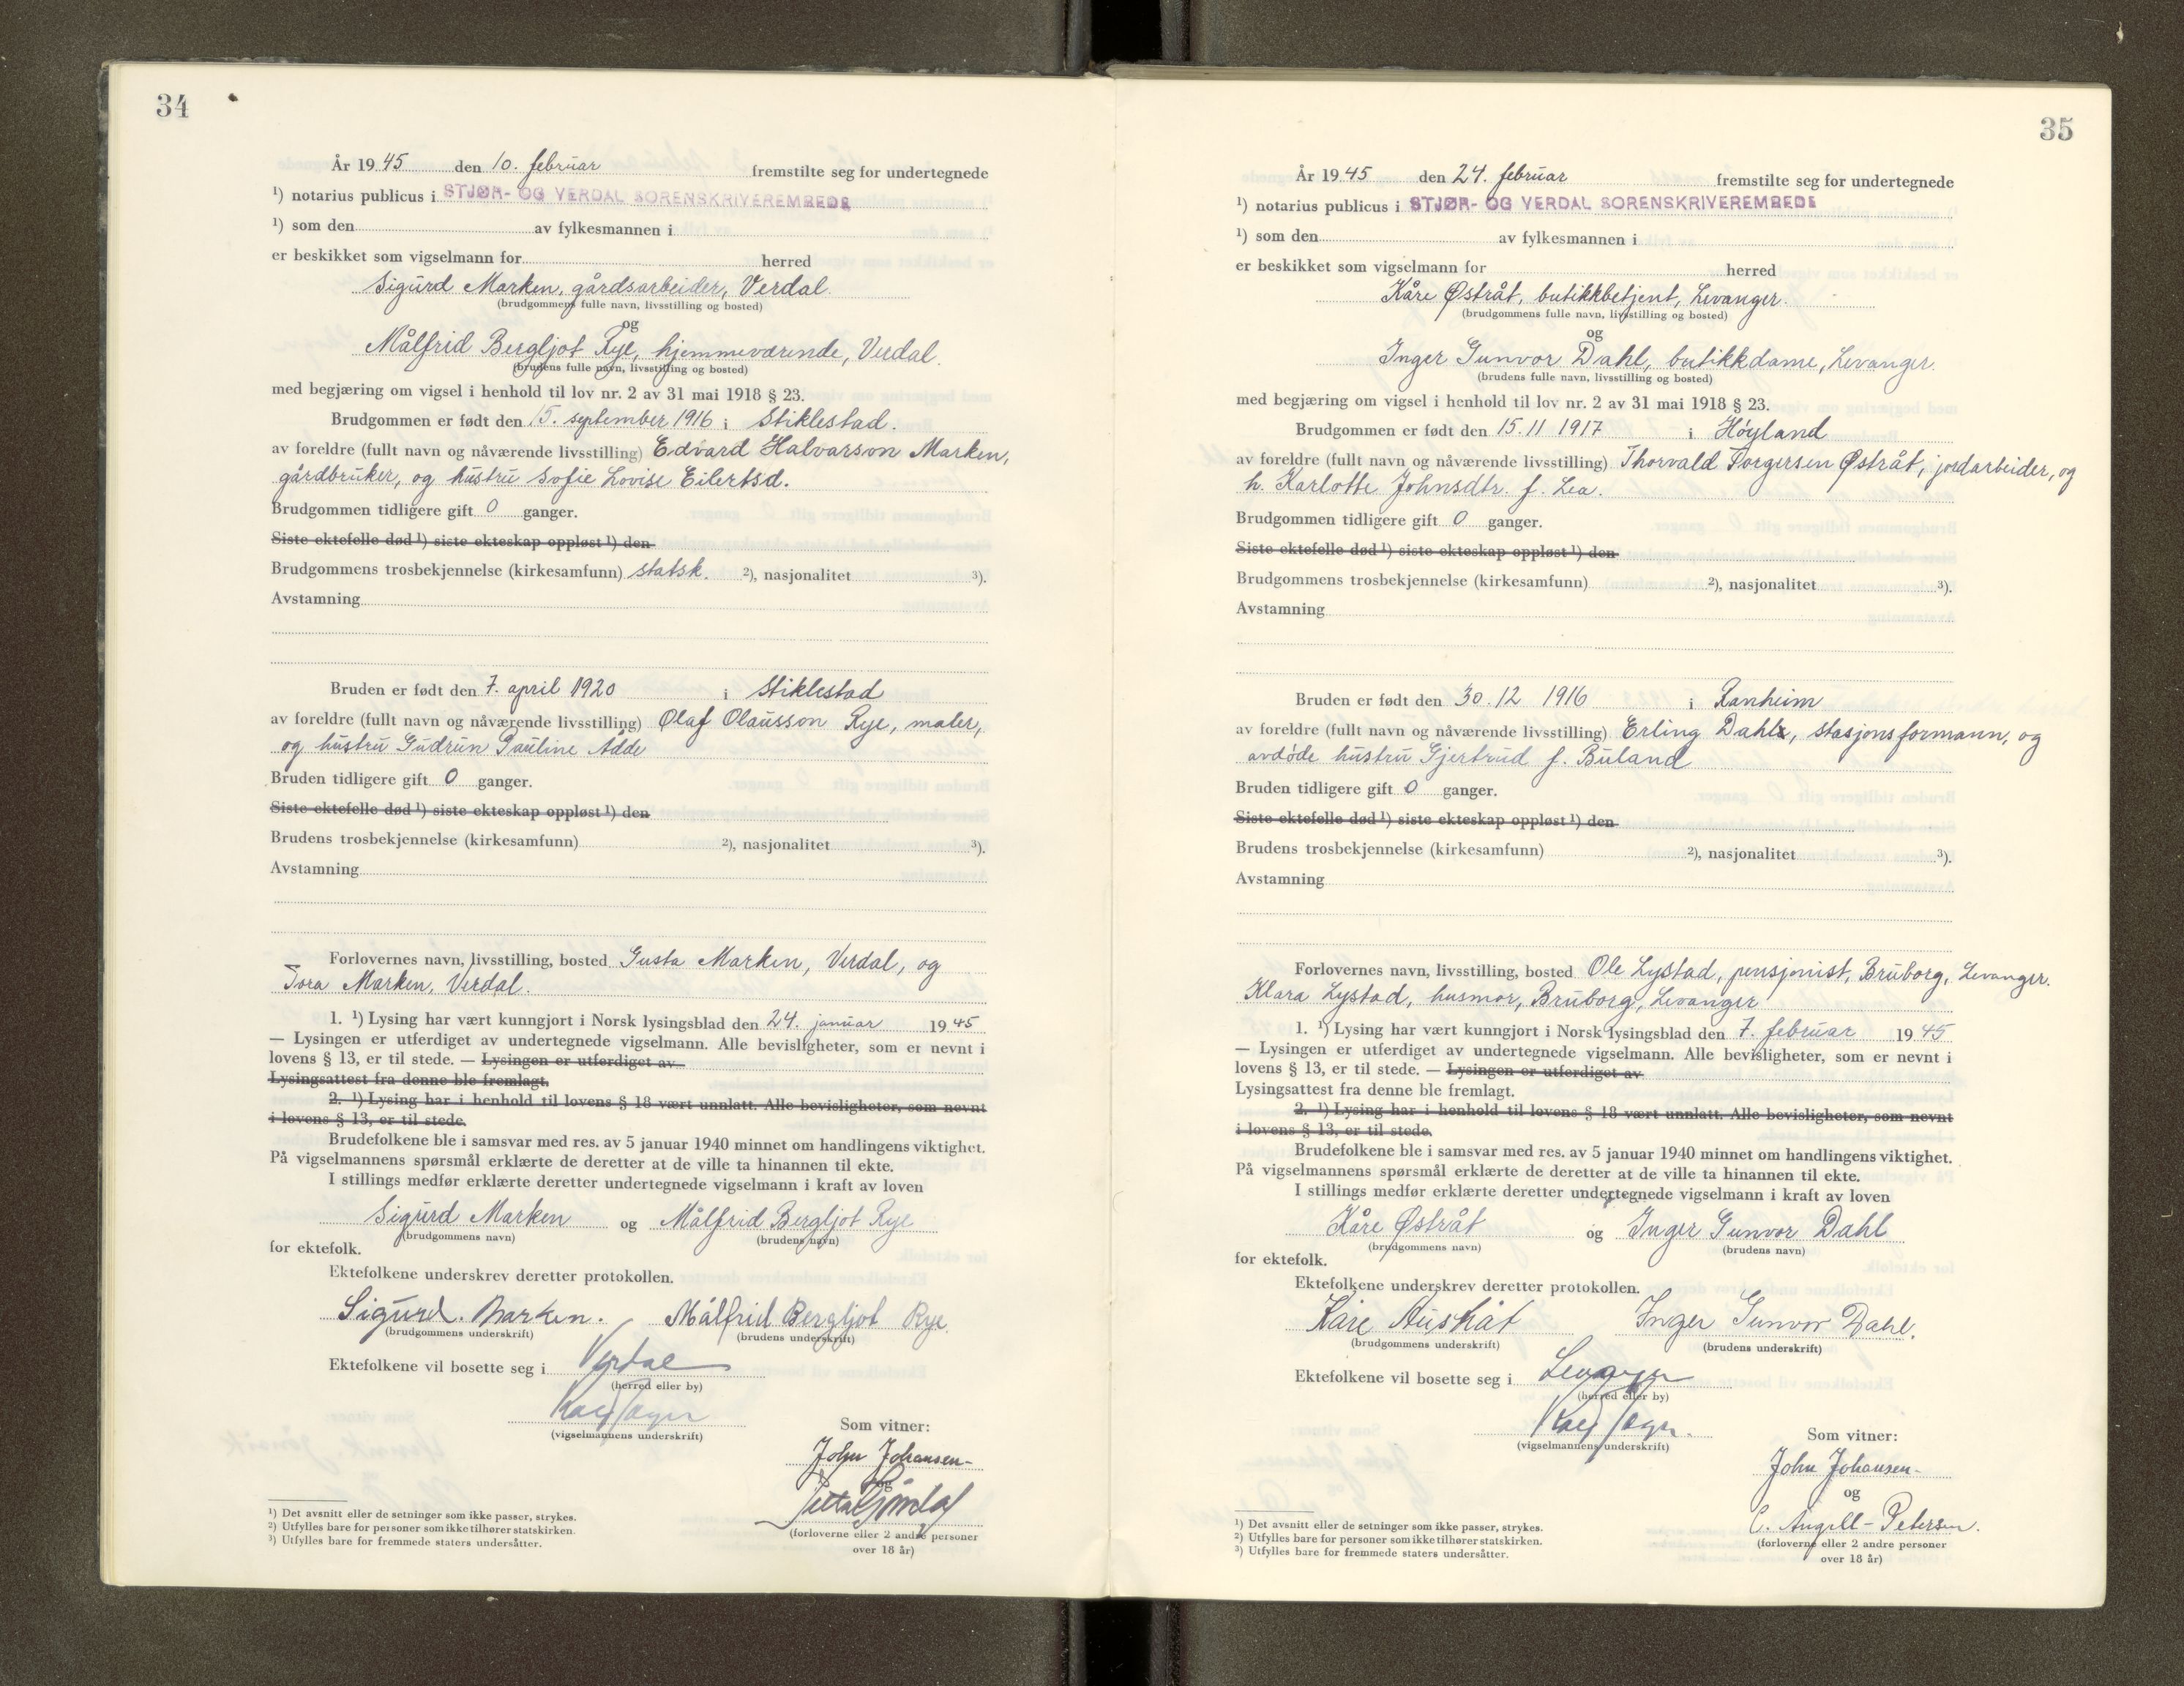 34
År 1945 den 10. februar fremstilte seg for undertegnede
¹) notarius publicus i STJØR- OG VERDAL SORENSKRIVEREMBEDE
¹) som den av fylkesmannen i
er beskikket som vigselmann for herred
Sigurd Marken, gårdsarbeider, Verdal.
(brudgommens fulle navn, livsstilling og bosted)
og
Målfrid Bergljot Rye, hjemmeværende, Verdal.
(brudens fulle navn, livsstilling og bosted)
med begjæring om vigsel i henhold til lov nr. 2 av 31 mai 1918 § 23.
Brudgommen er født den 15. september 1916 i Stiklestad.
av foreldre (fullt navn og nåværende livsstilling) Edvard Halvarson Marken,
gårdbruker, og hustru Sofie Lovise Eilertsd.
Brudgommen tidligere gift 0 ganger.
Siste ektefelle død ¹) siste ekteskap oppløst ¹) den
Brudgommens trosbekjennelse (kirkesamfunn) statsk. ²), nasjonalitet ³).
Avstamning
Bruden er født den 7. april 1920 i Stiklestad
av foreldre (fullt navn og nåværende livsstilling) Olaf Olausson Rye, maler,
og hustru Gudrun Pauline Ådde
Bruden tidligere gift 0 ganger.
Siste ektefelle død ¹) siste ekteskap oppløst ¹) den
Brudens trosbekjennelse (kirkesamfunn) ²), nasjonalitet ³).
Avstamning
Forlovernes navn, livsstilling, bosted Gusta Marken, Verdal, og
Tora Marken, Verdal.
1. ¹) Lysing har vært kunngjort i Norsk lysingsblad den 24. januar 1945
— Lysingen er utferdiget av undertegnede vigselmann. Alle bevisligheter, som er nevnt i
lovens § 13, er til stede. — Lysingen er utferdiget av
Lysingsattest fra denne ble fremlagt.
2. ¹) Lysing har i henhold til lovens § 18 vært unnlatt. Alle bevisligheter, som nevnt
i lovens § 13, er til stede.
Brudefolkene ble i samsvar med res. av 5 januar 1940 minnet om handlingens viktighet.
På vigselmannens spørsmål erklærte de deretter at de ville ta hinannen til ekte.
I stillings medfør erklærte deretter undertegnede vigselmann i kraft av loven
Sigurd Marken og Målfrid Bergljot Rye
(brudgommens navn) (brudens navn)
for ektefolk.
Ektefolkene underskrev deretter protokollen.
Sigurd. Marken. Målfrid Bergljot Rye.
(brudgommens underskrift) (brudens underskrift)
Ektefolkene vil bosette seg i Verdal
(herred eller by)
(vigselmannens underskrift)
Som vitner:
John Johansen-
og
(forloverne eller 2 andre personer
over 18 år)
¹) Det avsnitt eller de setninger som ikke passer, strykes.
²) Utfylles bare for personer som ikke tilhører statskirken.
³) Utfylles bare for fremmede staters undersåtter.
35
År 1945 den 24. februar fremstilte seg for undertegnede
¹) notarius publicus i STJØR- OG VERDAL SORENSKRIVEREMBEDE
¹) som den av fylkesmannen i
er beskikket som vigselmann for herred
Kåre Østråt, butikkbetjent, Levanger.
(brudgommens fulle navn, livsstilling og bosted)
og
Inger Gunvor Dahl, butikkdame, Levanger.
(brudens fulle navn, livsstilling og bosted)
med begjæring om vigsel i henhold til lov nr. 2 av 31 mai 1918 § 23.
Brudgommen er født den 15.11 1917 i Høyland
av foreldre (fullt navn og nåværende livsstilling) Thorvald Torgersen Østråt, jordarbeider, og
h. Karlotte Johnsdtr. f. Lea.
Brudgommen tidligere gift 0 ganger.
Siste ektefelle død ¹) siste ekteskap oppløst ¹) den
Brudgommens trosbekjennelse (kirkesamfunn) ²), nasjonalitet ³).
Avstamning
Bruden er født den 30.12 1916 i Ranheim
av foreldre (fullt navn og nåværende livsstilling) Erling Dahl, stasjonsformann, og
avdøde hustru Gjertrud f. Buland
Bruden tidligere gift 0 ganger.
Siste ektefelle død ¹) siste ekteskap oppløst ¹) den
Brudens trosbekjennelse (kirkesamfunn) ²), nasjonalitet ³).
Avstamning
Forlovernes navn, livsstilling, bosted Ole Lystad, pensjonist, Bruborg, Levanger.
Klara Lystad, husmor, Bruborg, Levanger
1. ¹) Lysing har vært kunngjort i Norsk lysingsblad den 7. februar 1945
— Lysingen er utferdiget av undertegnede vigselmann. Alle bevisligheter, som er nevnt i
lovens § 13, er til stede. — Lysingen er utferdiget av
Lysingsattest fra denne ble fremlagt.
2. ¹) Lysing har i henhold til lovens § 18 vært unnlatt. Alle bevisligheter, som nevnt
i lovens § 13, er til stede.
Brudefolkene ble i samsvar med res. av 5 januar 1940 minnet om handlingens viktighet.
På vigselmannens spørsmål erklærte de deretter at de ville ta hinannen til ekte.
I stillings medfør erklærte deretter undertegnede vigselmann i kraft av loven
Kåre Østråt og Inger Gunvor Dahl
(brudgommens navn) (brudens navn)
for ektefolk.
Ektefolkene underskrev deretter protokollen.
Kåre Austråt Inger Gunvor Dahl.
(brudgommens underskrift) (brudens underskrift)
Ektefolkene vil bosette seg i Levanger
(herred eller by)
(vigselmannens underskrift)
Som vitner:
John Johansen-
og
C. Angell-Petersen.
(forloverne eller 2 andre personer
over 18 år)
¹) Det avsnitt eller de setninger som ikke passer, strykes.
²) Utfylles bare for personer som ikke tilhører statskirken.
³) Utfylles bare for fremmede staters undersåtter.